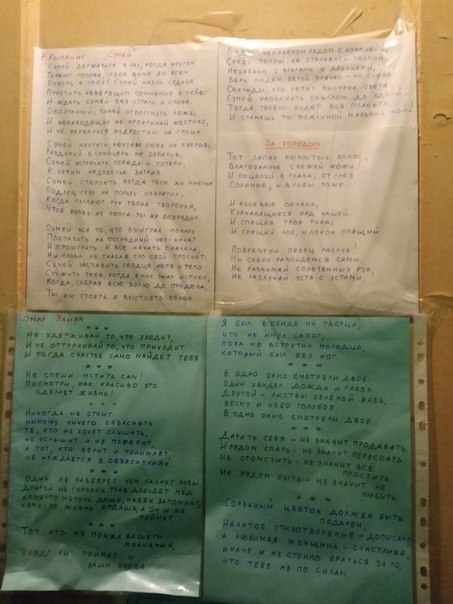 Р. Киплинг Сумей
Сумей держаться в час, когда кругом
Теряют голову, тебя виня во всём
Поверь в себя! Сумей назло судьбе
Простить неверящим сомнение в тебе,
И ждать сумей без устали и срока.
Оболганный, сумей отвергнуть ложь,
И ненавидящих не проклинай жестоко,
И не бахвалься мудростью на грошь.
Сумей мечтать, мечтам себя не вверив,
Раздумий в самоцель не обратив,
Сумей встречать победы и потери,
К обеим недоверье затаив.
Сумей стерпеть, когда твое же мненье
Подлец себе на пользу извратил,
Когда пылают рук твоих творенья,
Чтоб вновь из пепла ты их возродил.
Сумей все то, что выиграл помалу
Поставить на последний чет-нечет
И проиграть. И все начать сначала,
Ни слова не сказав про свой просчет.
Сумей заставить сердце, нерв и тело
Служить тебе, когда в них жар истлел,
Когда, собрав всю волю до предела,
Ты им стоять и выстоять велел
Будь человеком рядом с королями,
Средь толпы не становись толпой.
Неуязвим с врагами и друзьями,
Верь людям всей душой - не слепо.
Секунды, что летят быстрей света
Сумей наполнить смыслом до одной.
Тогда твоею будет вся планета
И станешь ты мужчиной, мальчик мой!
За городом
Тот запах вымытых волос,
Благоуханье свежей кожи
И поцелуй в глаза, от слез
Соленые, и в губы тоже.
И кучевые облака,
Курчавящиеся над чащей
И спящая твоя рука,
И спящий лоб, и локон спящий
Повремени певец разлук!
Мы скоро разойдемся сами.
Не разнимай сплетенных рук,
Не разлучай уста с устами.
Омар Хайям
* * *
Не удерживай то что уходит,
И не отталкивай то, что приходит,
И тогда счастье само найдет тебя
* * *
Не спеши мстить сам!
Посмотри, как красиво это
сделает жизнь!
Никогда не стоит
никому ничего объяснять.
Те, кто не хочет слушать,
не услышит и не поверит,
а тот, кто верит и понимает,
не нуждается в объяснениях.
* * *
Один не разберет чем пахнут розы,
Другой из горьких трав добудет мед.
Кому-то мелочь дашь, навек запомнит,
Кому-то жизнь отдашь, а он и не
поймет
* * *
Тот кто не понял вашего
молчания,
Вряд ли поймет и
ваши слова
Я был в обиде на творца,
что не имел сапог,
пока не встретил молодца,
который был без ног
* * *
В одно окно смотрели двое.
Один увидел дождь и грязь.
Другой - листвы зеленой вязь,
весну и небо голубое.
В одно окно смотрели двое.
* * *
Дарить себя - не значит продавать.
И рядом спать - не значит переспать.
Не отомстить - не значит все
простить
Не рядом быть - не значит
любить.
* * *
Сорваный цветок должен быть
подарен,
Начатое стихотворение - дописано
а любимая женщина - счастлива,
иначе и не стоило браться за то,
что тебе не по силам.